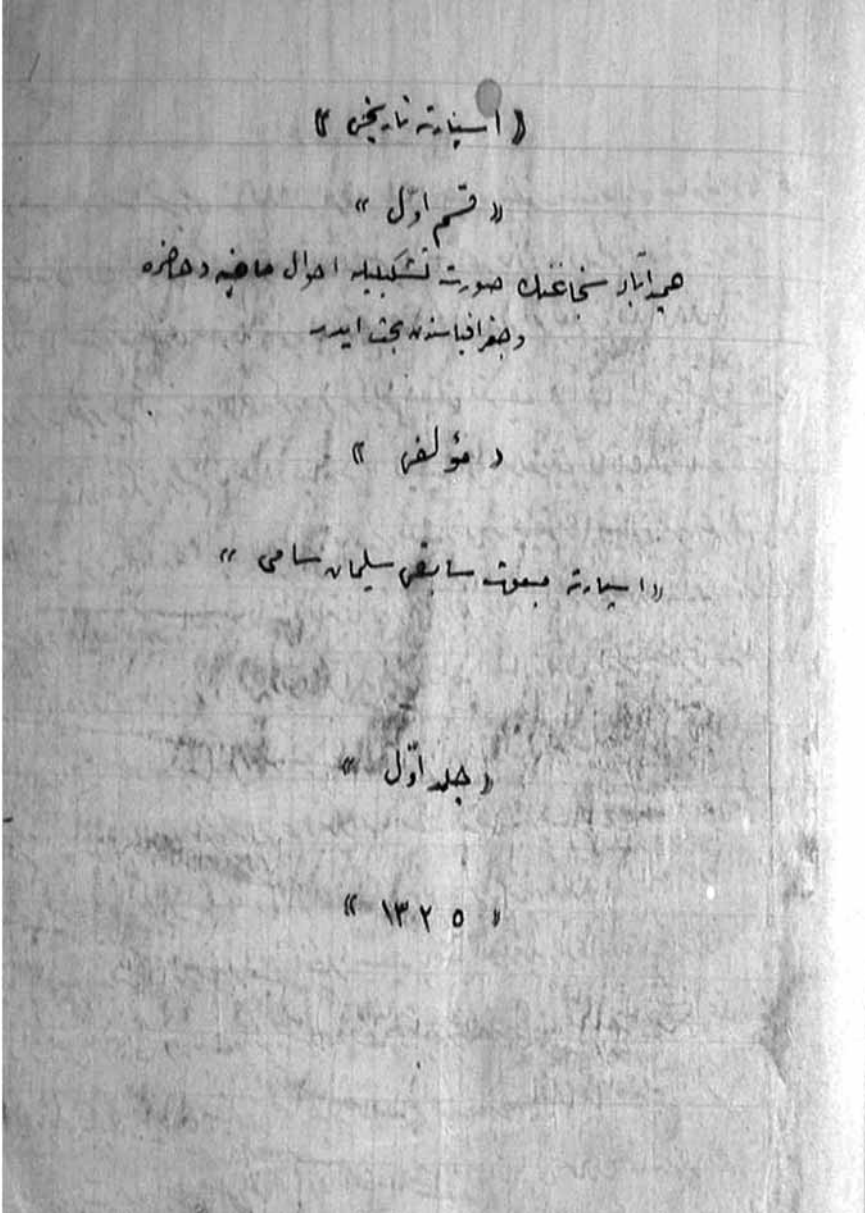 « اسپارته تاریخی »
« قسم اوّل »
حمیدآباد سنجاغنك صورت تشكیلیله احوال ماضیه وحاضره
وجغرافیاسندن بحث ایدر
« مؤلفی »
« اسپارته مبعوث سابقی سلیمان سامی »
« جلد اوّل »
« ١٣٢٥ »